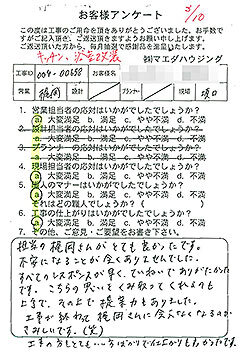 お客様アンケート
3/10
この度は工事のご用命を頂きありがとうございました。お手数で
すがご記入頂き、ご返送頂きますようお願い申し上げます。
ご返送頂いた方から、毎月抽選で感謝品を進呈いたします。
キッチン、浴室改装
㈱マエダハウジング
工事ID 004-00658 お客様名
営業 梶岡 設計 プランナー 現場 坂口
1. 営業担当者の応対はいかがでしたでしょうか?
a) 大変満足 b. 満足 c. やや不満 d. 不満
2. 設計担当者の応対はいかがでしたでしょうか?
a. 大変満足 b. 満足 c. やや不満 d. 不満
3. プランナーの応対はいかがでしたでしょうか?
a. 大変満足 b. 満足 c. やや不満 d. 不満
4. 現場担当者の応対はいかがでしたでしょうか?
a) 大変満足 b. 満足 c. やや不満 d. 不満
5. 職人のマナーはいかがでしたでしょうか?
a) 大変満足 b. 満足 c. やや不満 d. 不満
それはどの職人でしょうか?( )
6. 工事の仕上がりはいかがでしたでしょうか?
a) 大変満足 b. 満足 c. やや不満 d. 不満
7. その他、ご意見・ご要望をお聞かせ下さい。
担当の梶岡さんがとても良かったです。
不安になることが全くありませんでした。
すべてのレスポンスが早く、ていねいでありがたかった
です。こちらの思いをくみ取ってくれるのも
上手で、その上で提案力もありました。
工事が終わって梶岡さんに会えなくなるのが
さみしいです。(笑)
工事の方もとても…